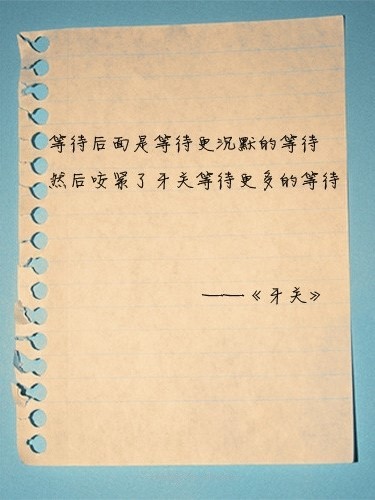 等待后面是等待更沉默的等待
然后咬紧了牙关等待更多的等待
——《牙关》